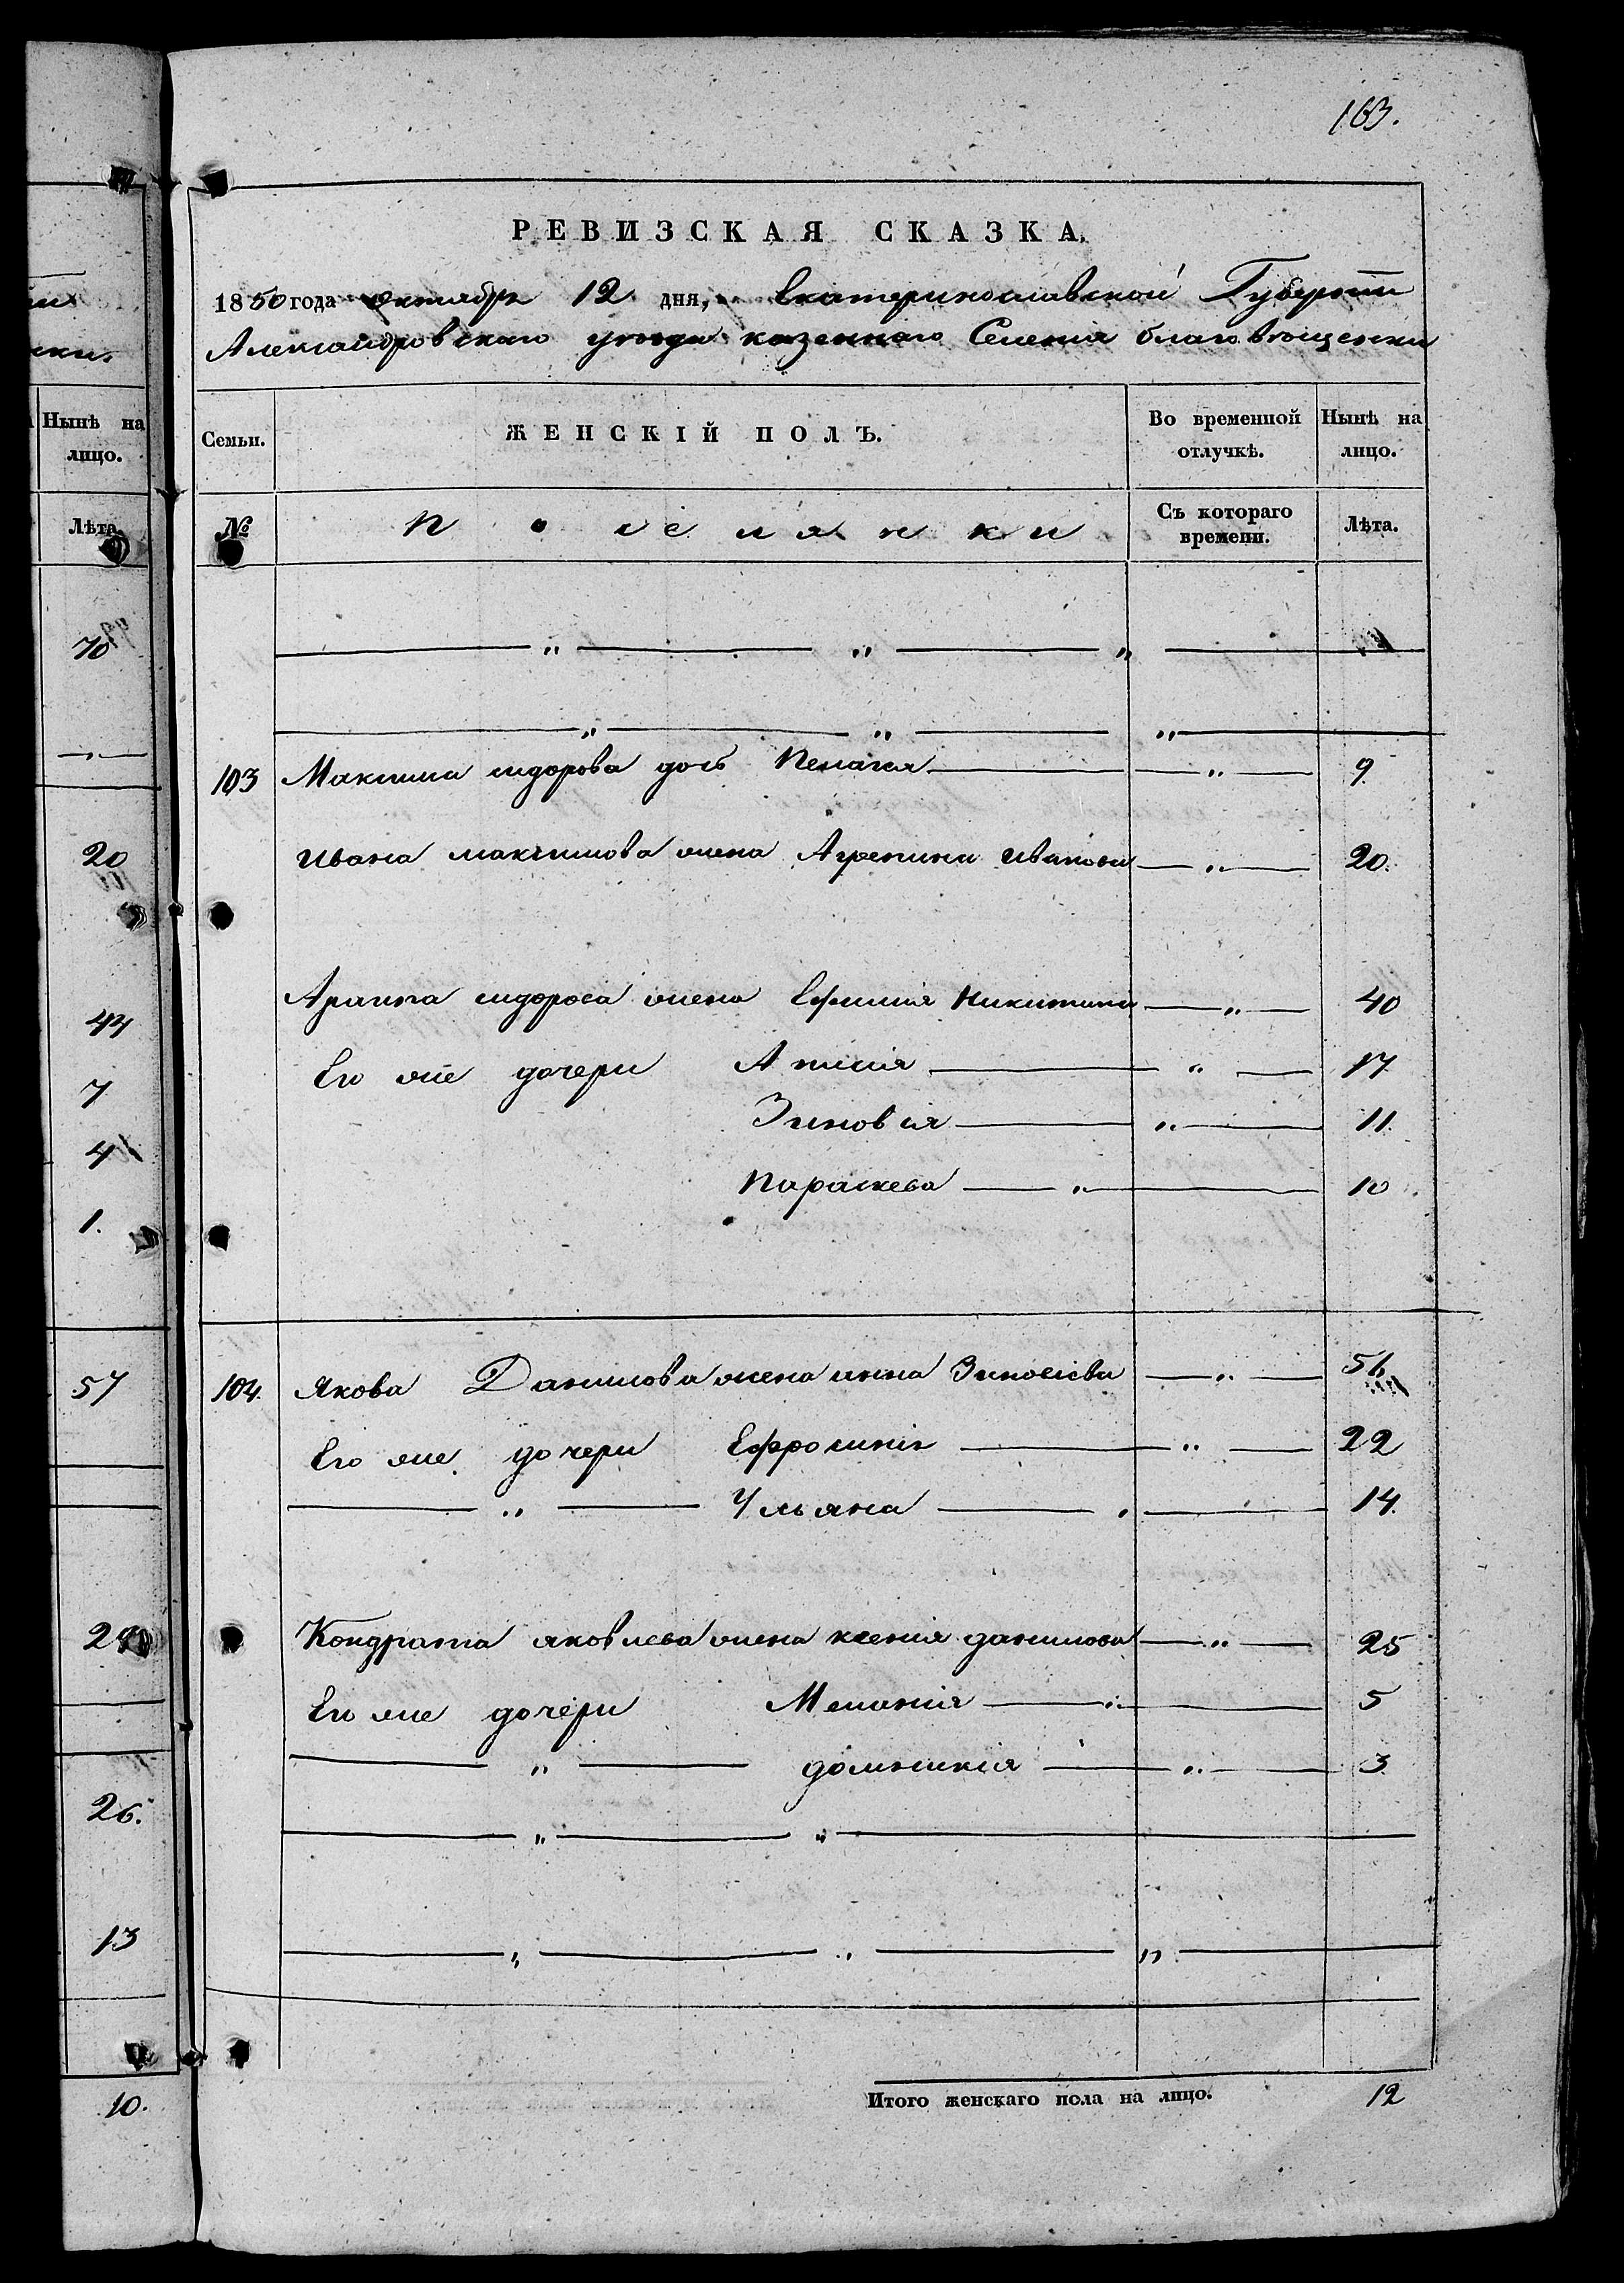 163.
РЕВИЗСКАЯ СКАЗКА.
1850 года октября 12 дня, Екатеринославской Губерніи
Александровскаго уѣзда казеннаго Селенія благовѣщенки
Нынѣ на лицо.
Семьи.
ЖЕНСКІЙ ПОЛЪ.
Во временной отлучкѣ.
Нынѣ на лицо.
Лѣта.
№
Поселянки
Съ котораго времени.
Лѣта.
70
103 Максима сидорова дочь Пелагея — „ — 9
20
Ивана максимова жена Агрепина иванова — „ — 20.
44
сидорова жена Ефимія Никитина — „ — 40
Его же дочери — „ — 17
7
Зиновія — „ — 11.
4
Параскева — „ — 10
1.
57
104. Якова Данилова жена анна Зиновіева — „ — 56
Его же дочери Ефросинія — „ — 22
— „ — Ульяна — „ — 14.
Кондрата яковлева жена ксенія данилова — „ — 25
Его же дочери Меланія — „ — 5
— „ — домникія — „ — 3
26.
13
10.
Итого женскаго пола на лицо. 12